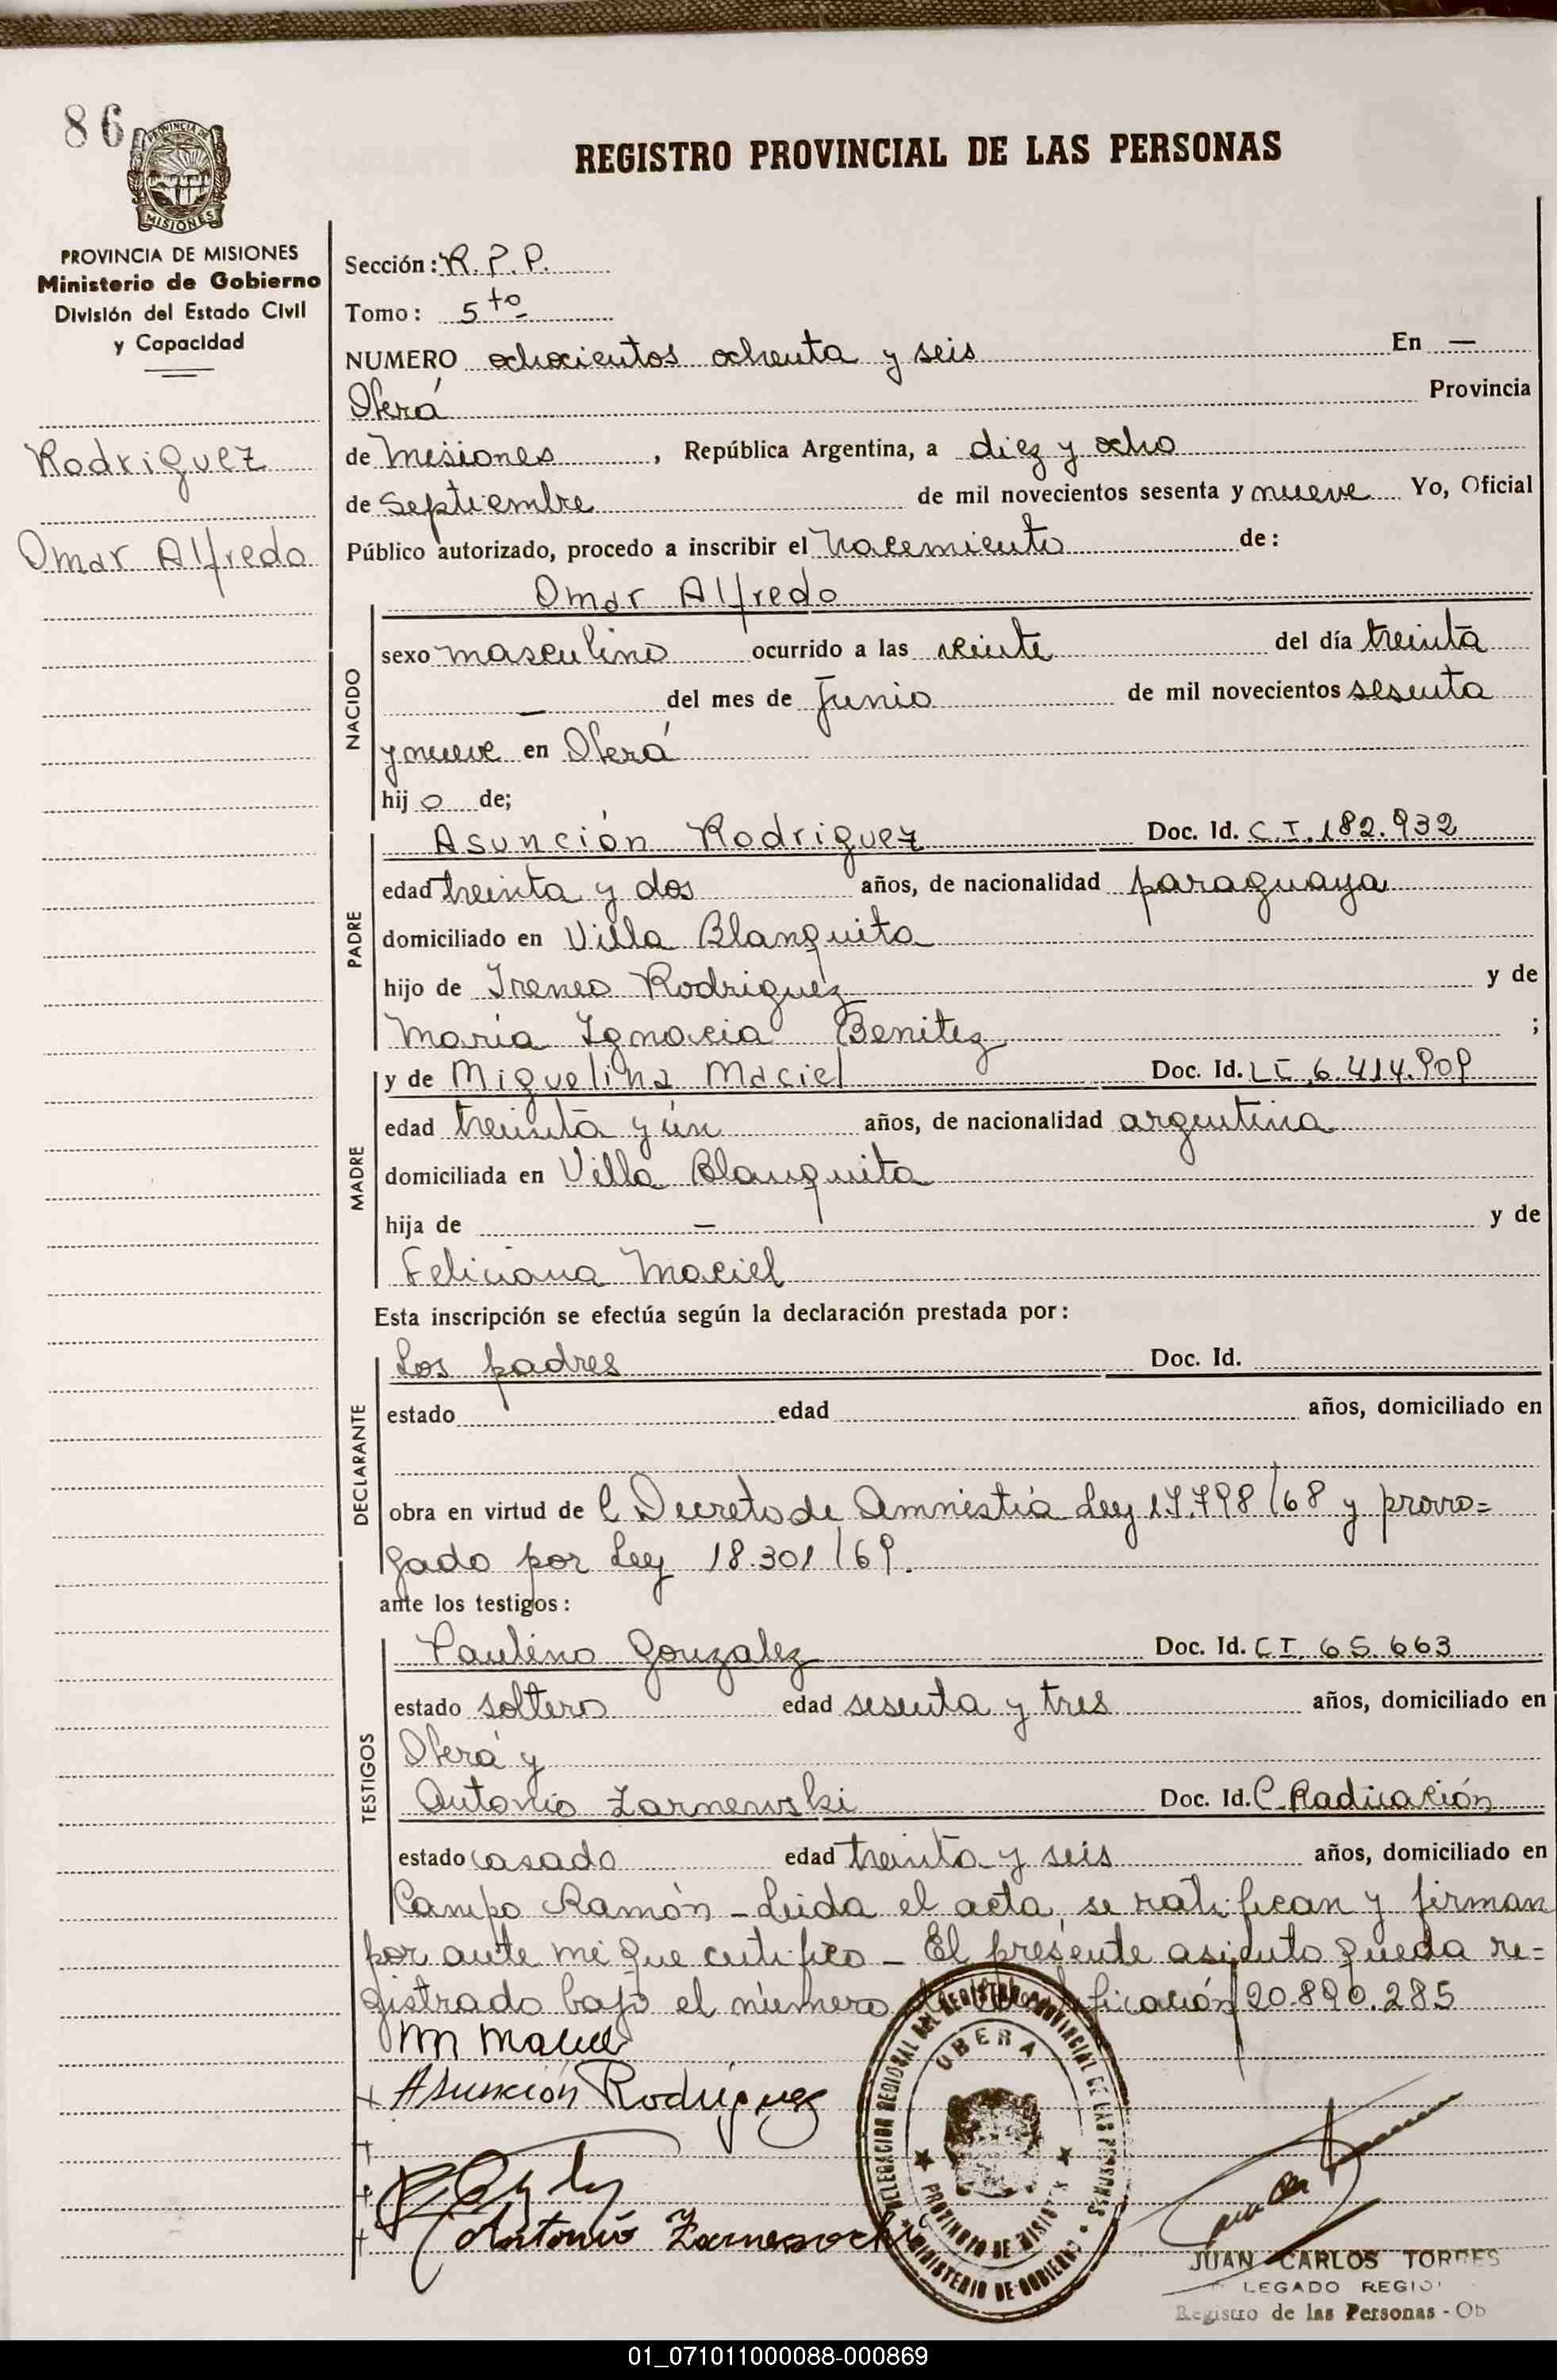 86
PROVINCIA DE
MISIONES
REGISTRO PROVINCIAL DE LAS PERSONAS
PROVINCIA DE MISIONES
Ministerio de Gobierno
División del Estado Civil
y Capacidad
Rodriguez
Omar Alfredo
Sección: R.P.P.
Tomo: 5to
NUMERO ochocientos ochenta y seis En —
Oberá Provincia
de Misiones, República Argentina, a diez y ocho
de Septiembre de mil novecientos sesenta y nueve Yo, Oficial
Público autorizado, procedo a inscribir el nacemiento de:
NACIDO
Omar Alfredo
sexo masculino ocurrido a las veinte del día treinta
— del mes de Junio de mil novecientos sesenta
y nueve en Oberá
hijo de;
PADRE
Asunción Rodriguez Doc. Id. C.I. 182.932
edad treinta y dos años, de nacionalidad paraguaya
domiciliado en Villa Blanquita
hijo de Ireneo Rodriguez y de
Maria Ignacia Benitez ;
MADRE
y de Miguelina Maciel Doc. Id. LC 6.414.909
edad treinta y ún años, de nacionalidad argentina
domiciliada en Villa Blanquita
hija de — y de
Feliciana Maciel
Esta inscripción se efectúa según la declaración prestada por:
DECLARANTE
Los padres Doc. Id.
estado edad años, domiciliado en
obra en virtud de l Decreto de Amnistia Ley 17.798/68 y prorro=
gado por Ley 18.301/69.
ante los testigos:
TESTIGOS
Paulino Gonzalez Doc. Id. CI. 65.663
estado soltero edad sesenta y tres años, domiciliado en
Oberá y
Antonio Zarnewski Doc. Id. C. Radicación
estado casado edad treinta y seis años, domiciliado en
Campo Ramón - Leida el acta, se ratifican y firman
por ante mi que certifico - El presente asiento queda re=
gistrado bajo el número de identificación 20.890.285
M Maciel
Asunción Rodriguez
Antonio
DELEGACION REGIONAL DEL REGISTRO PROVINCIAL DE LAS PERSONAS
OBERA
PROVINCIA DE MISIONES
MINISTERIO DE GOBIERNO
JUAN CARLOS TORRES
LEGADO REGIO
Registro de las Personas - Ob
01_071011000088-000869